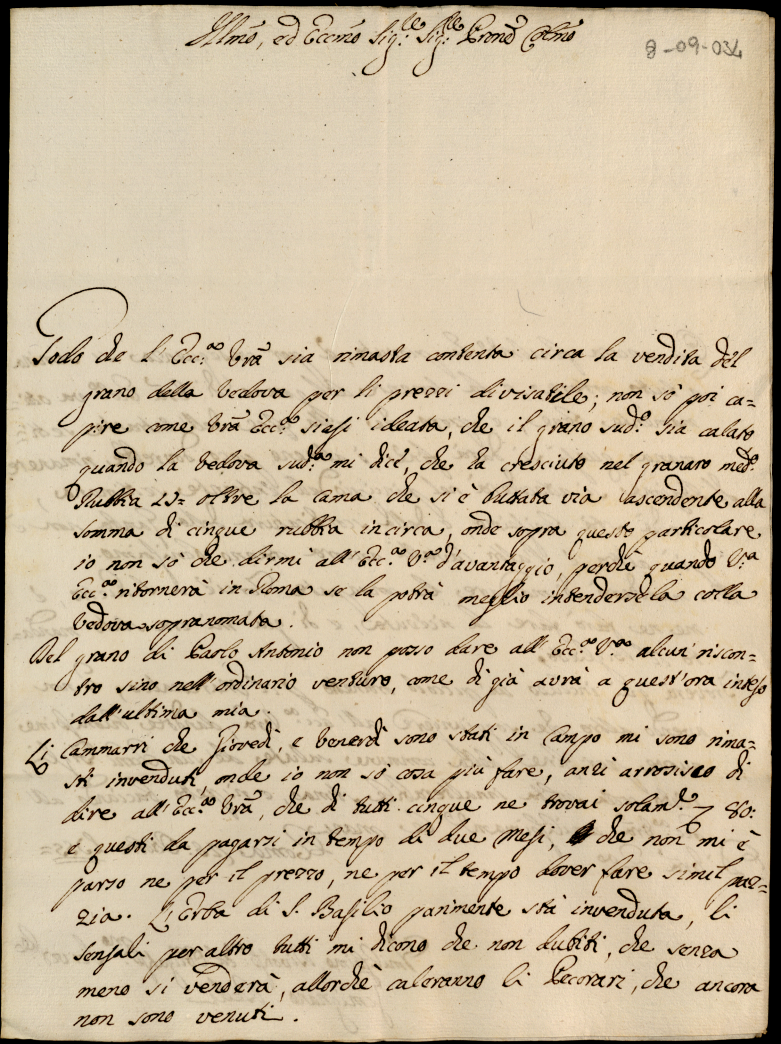 Illmo, ed Eccmo Sig:re Sig:re Prone Colmo
8-09-034
Godo che l'Ecc:za Vra sia rimasta contenta circa la vendita del
grano della vedova per li prezzi divisatile; non sò poi ca=
pire come Vra Ecc:za siasi ideata, che il grano sud:o sia calato
quando la vedova sud:a mi dice, che ha cresciuto nel granaro med:o
Rubbia 25= oltre la cama che si è buttata via ascendente alla
somma di cinque rubbia incirca, onde sopra questo particolare
io non sò che dirmi all'Ecc:za V:ra d'avantaggio, perchè quando V:ra
Ecc:za ritornerà in Roma se la potrà meglio intendersela colla
vedova sopranomata.
Del grano di Paolo Antonio non posso dare all'Ecc:za V:ra alcun riscon=
tro sino nell'ordinario venturo, come di già avrà a quest'ora inteso
dall'ultima mia.
Li Cammarri che Giovedì, e Venerdì sono stati in Campo mi sono rima=
sti invenduti, onde io non sò cosa più fare, anzi arrosisco di
dire all'Ecc:za Vra, che di tutti cinque ne trovai solam:te 80:
e questi da pagarsi in tempo di due Mesi, che non mi è
parso ne per il prezzo, ne per il tempo dover fare simil paz=
zia. L'Erba di S. Basilio parimente stà invenduta, li
sensali per altro tutti mi dicono che non dubiti, che senza
meno si venderà, allorchè caleranno li Pecorari, che ancora
non sono venuti.